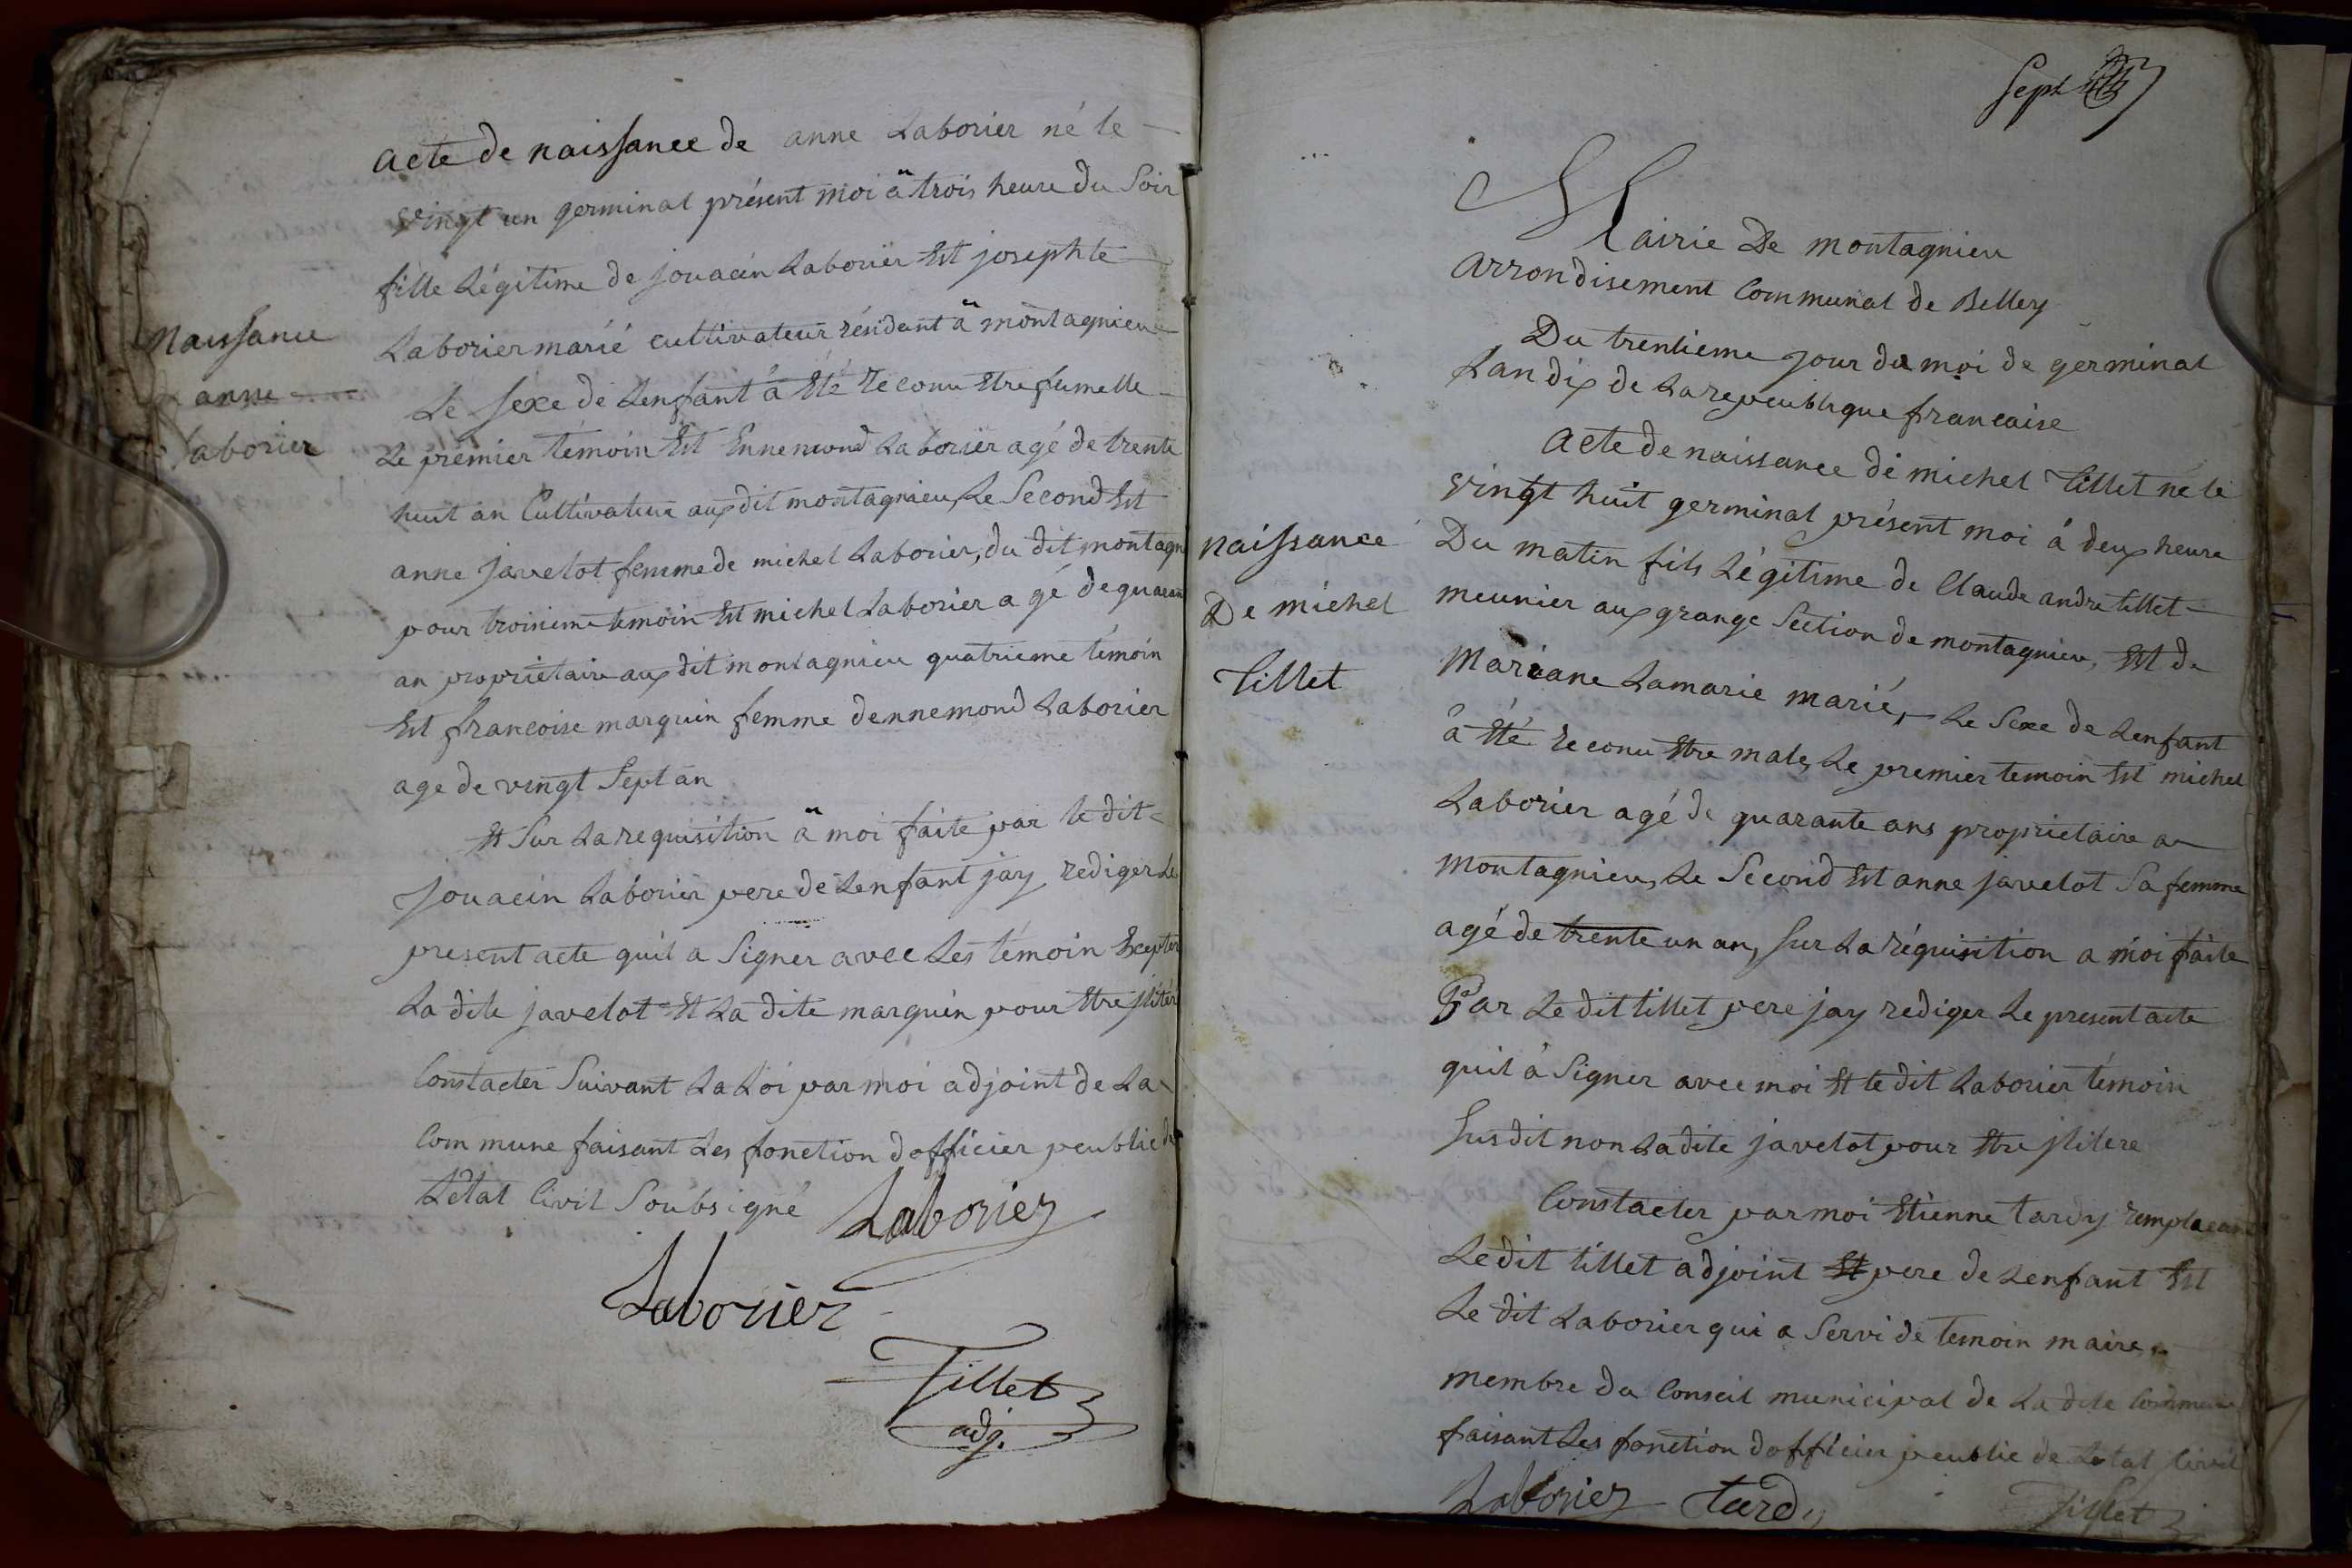 acte de naissance de anne Laborier né le
vingt un germinal présent moi à trois heure du Soir
fille Légitime de jouacin Laborier Est josephte
Laborier marié cultivateur résidant à montagnieu
Le Sexe de Lenfant à Eté reconu Etre fumelle
Le premier témoin Est Ennemond Laborier agé de trente
huit an Cultivateur aux dit montagnieu, Le Second Est
anne javelot femme de michel Laborier, du dit montagn
pour troisieme temoin Est michel Laborier a gé de quaran
an propriétaire aux dit montagnieu quatrieme témoin
Est francoise marquin femme dennemond Laborier
age de vingt Sept an
Et Sur La requisition à moi faite par le dit
jouacin Laborier pere de Lenfant jay rediger Le
present acte quil a Signer avec Les témoin Excepter
La dite javelot Et La dite marquin pour Etre jliter
Constacter Suivant La Loi par moi adjoint de La
Commune faisant Les fonction dofficier peublic de
Létat Civil Soubsigné Laborier
Laborier
Tillet
adj.
Naissance
anne
Laborier
Sept
Mairie De montagnieu
arrondisement Communal de Belley
Du trentieme jour du moi de germinal
Lan dix de La repeublique francaise
acte de naissance de michel tillet né le
vingt huit germinal présent moi à deux heure
Du matin fils Légitime de Claude andre tillet
meunier aux grange Section de montagnieu, Est de
Mariane Lamarie marié, Le Sexe de Lenfant
à Eté reconu Etre male, Le premier temoin Est michel
Laborier agé de quarante ans proprietaire a
montagnieu, Le Second Est anne javelot Sa femme
agé de trente un an, Sur La réquisition a moi faite
Par Le dit tillet pere jay rediger Le present acte
quil à Signer avec moi Et le dit Laborier témoin
Susdit non La dite javelot pour Etre jlitere
Constacter par moi Etienne tardy remplacant
Le dit tillet adjoint Et pere de Lenfant Est
Le dit Laborier qui a Servi de temoin maire
membre du Conseil municipal de La dite Commune
faisant Les fonction dofficier peublic de Letat Civil
Laborier tardy Tillet
naissance
De michel
tillet